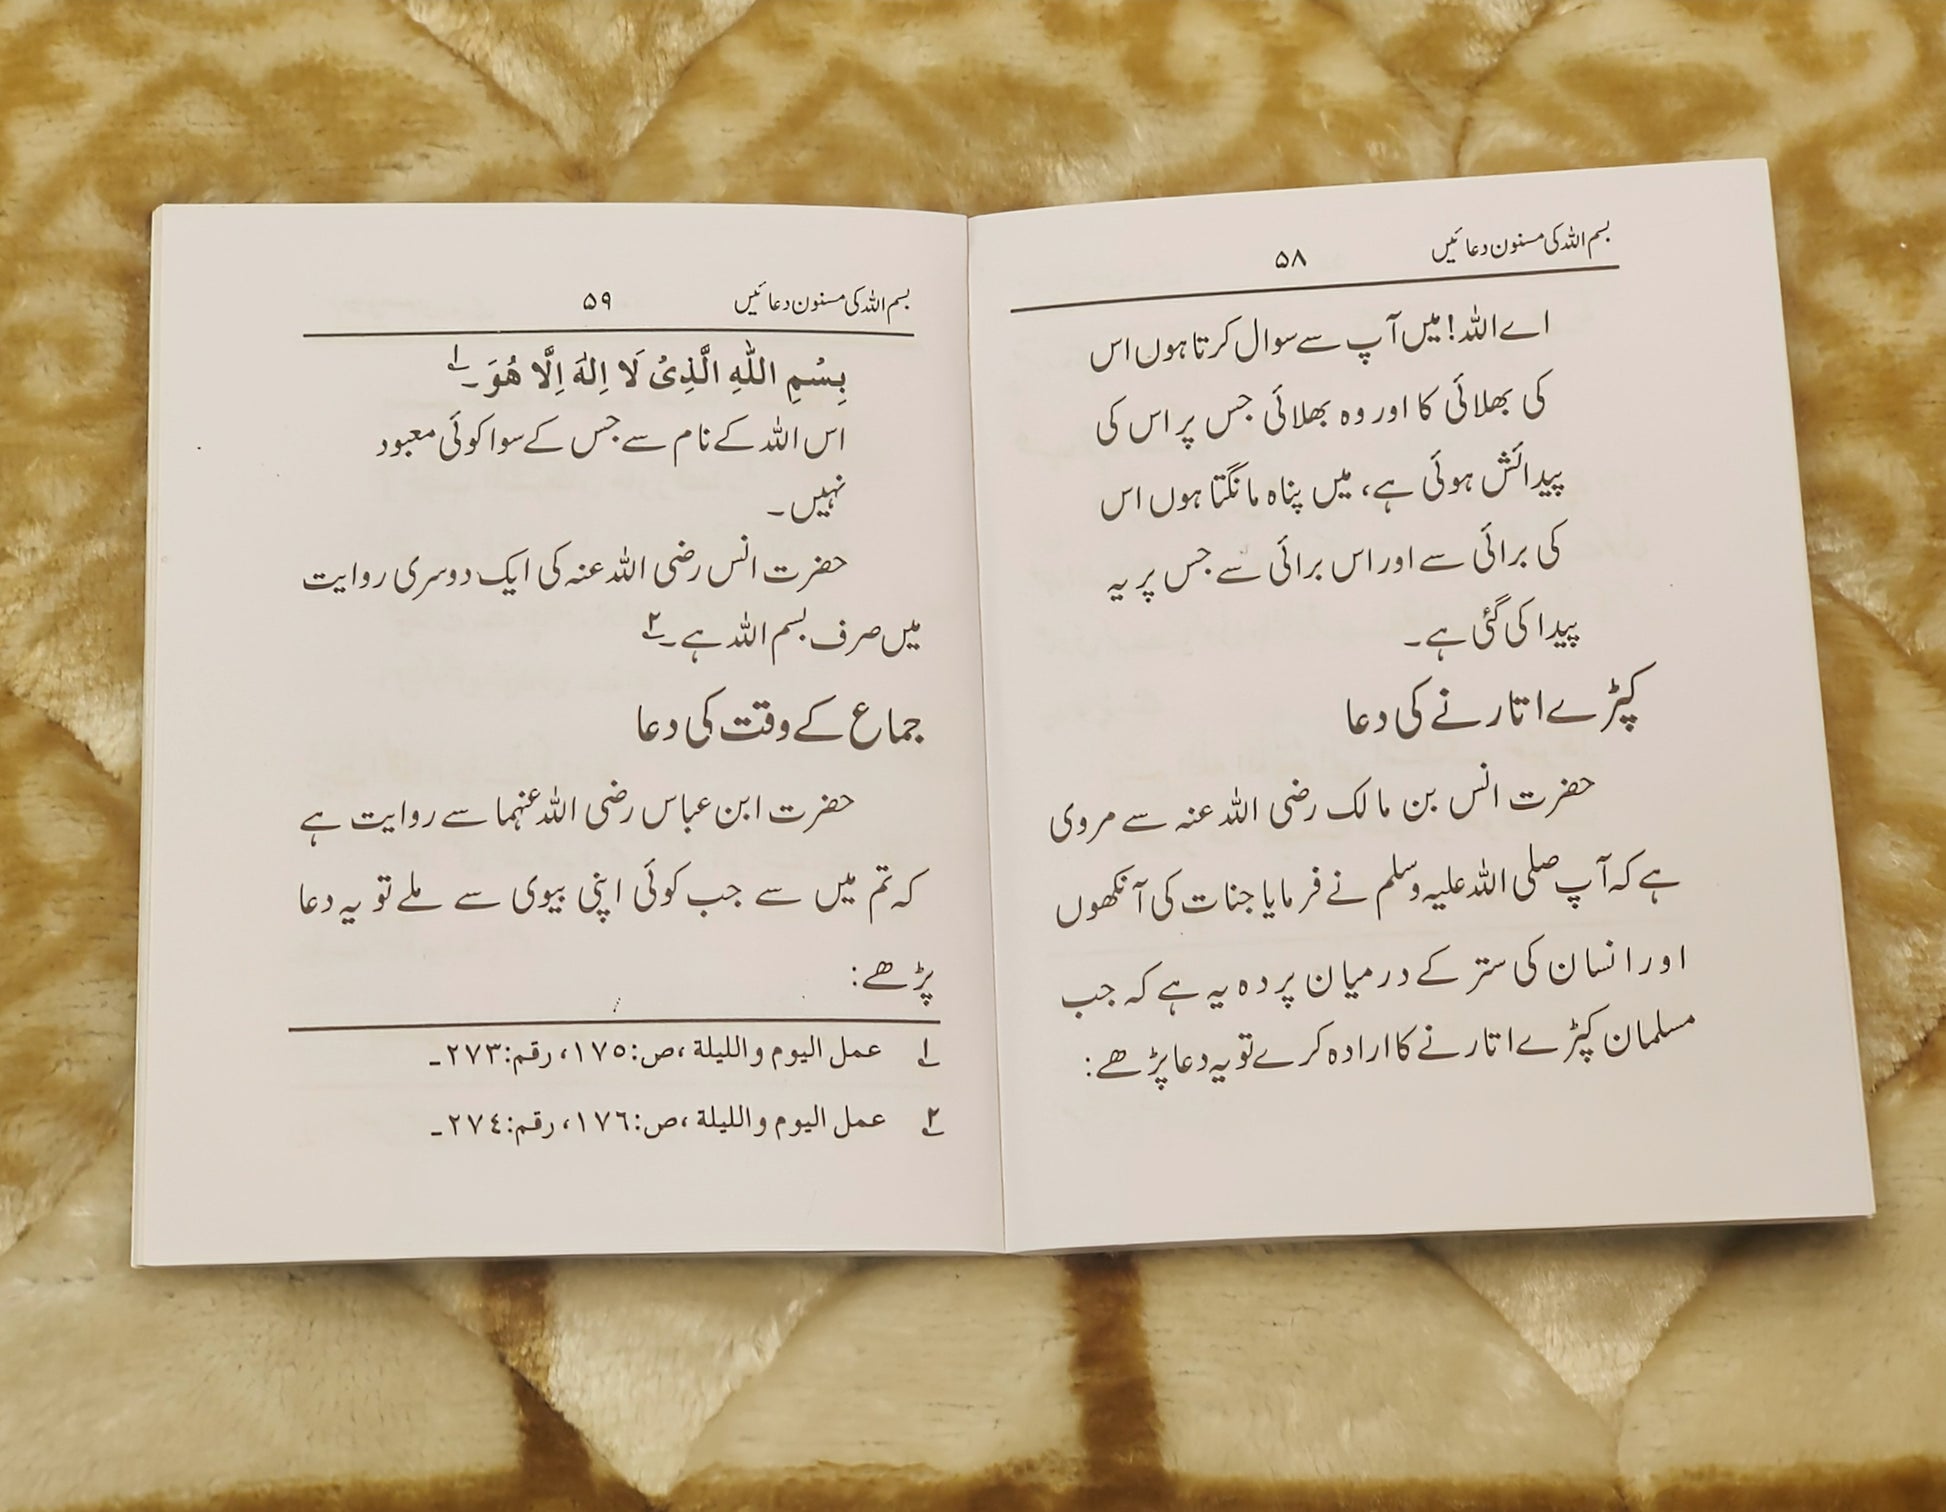 بسم اللہ کی مسنون دعائیں ۵۸
اے اللہ! میں آپ سے سوال کرتا ہوں اس
کی بھلائی کا اور وہ بھلائی جس پر اس کی
پیدائش ہوئی ہے، میں پناہ مانگتا ہوں اس
کی برائی سے اور اس برائی سے جس پر یہ
پیدا کی گئی ہے۔
کپڑے اتارنے کی دعا
حضرت انس بن مالک رضی اللہ عنہ سے مروی
ہے کہ آپ صلی اللہ علیہ وسلم نے فرمایا جنات کی آنکھوں
اور انسان کی ستر کے درمیان پردہ یہ ہے کہ جب
مسلمان کپڑے اتارنے کا ارادہ کرے تو یہ دعا پڑھے:
بسم اللہ کی مسنون دعائیں ۵۹
بِسْمِ اللّٰهِ الَّذِیْ لَا اِلٰهَ اِلَّا هُوَ۔ ۱
اس اللہ کے نام سے جس کے سوا کوئی معبود
نہیں۔
حضرت انس رضی اللہ عنہ کی ایک دوسری روایت
میں صرف بسم اللہ ہے۔ ۲
جماع کے وقت کی دعا
حضرت ابن عباس رضی اللہ عنہما سے روایت ہے
کہ تم میں سے جب کوئی اپنی بیوی سے ملے تو یہ دعا
پڑھے:
۱ عمل الیوم واللیلة، ص:١٧٥، رقم:٢٧٣۔
۲ عمل الیوم واللیلة، ص:١٧٦، رقم:٢٧٤۔